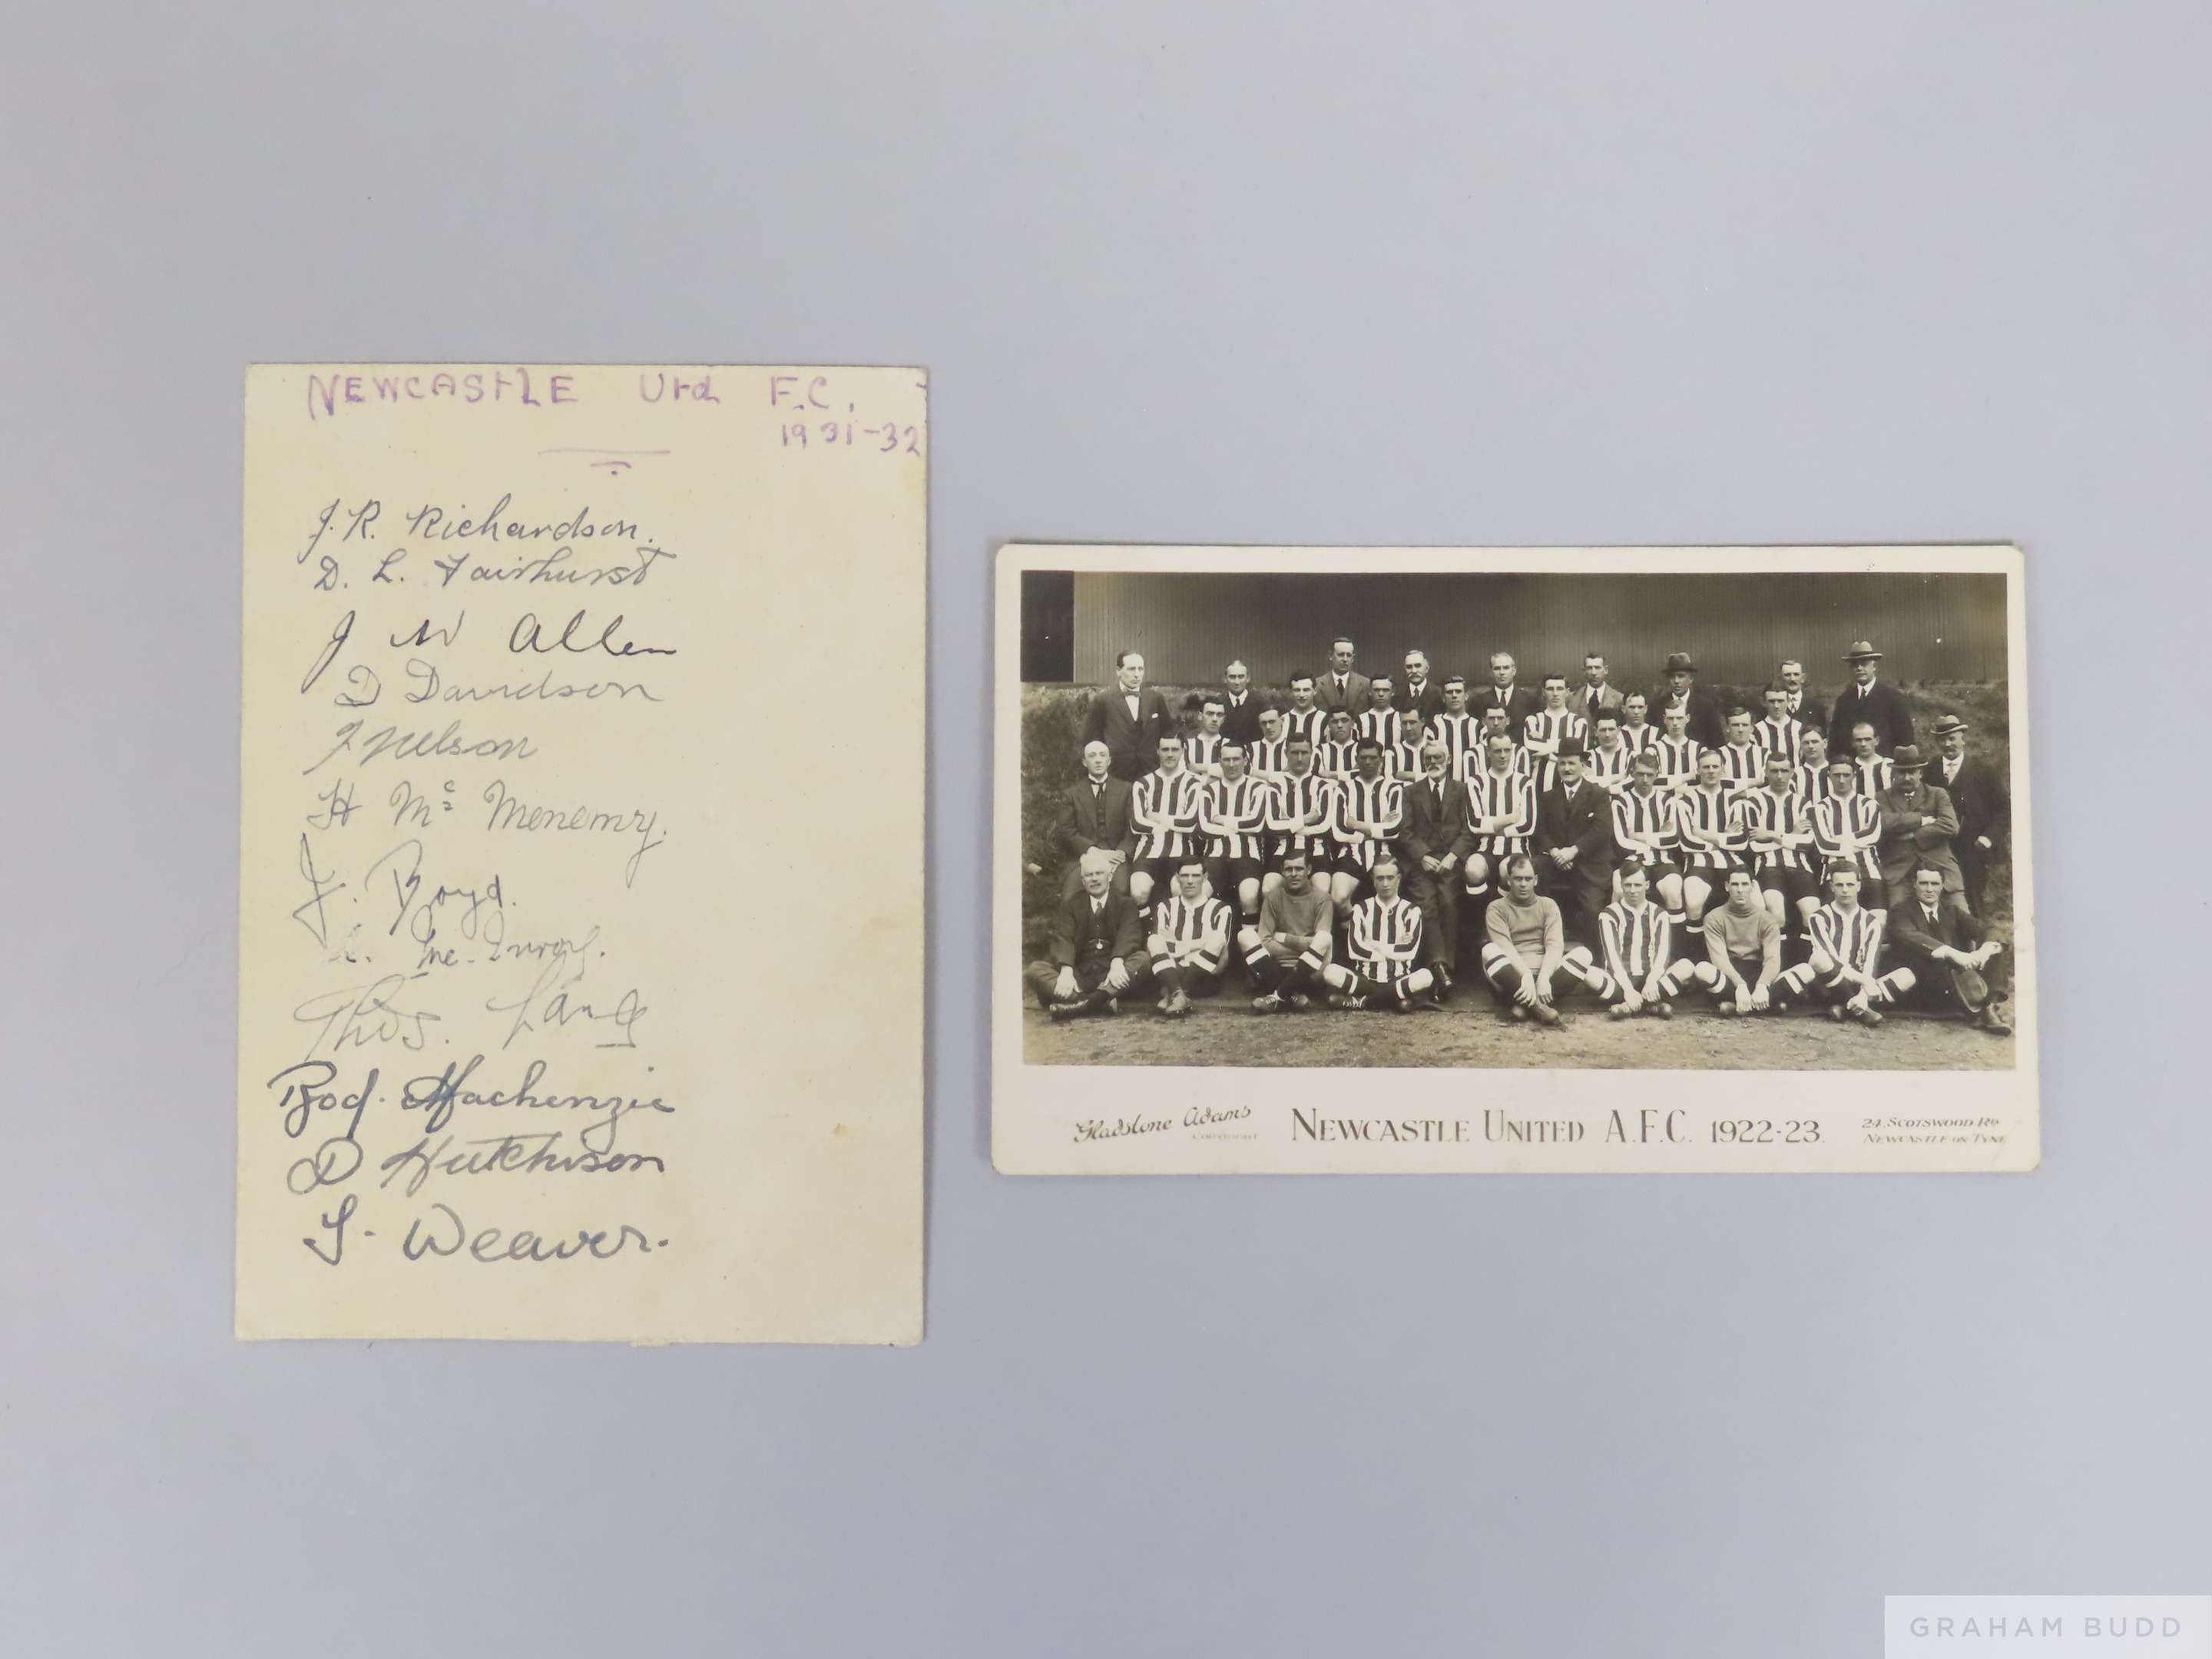 NEWCASTLE Utd F.C.
1931-32
J. R. Richardson.
D. L. Fairhurst
J W Allen
D Davidson
J Nelson
H Mc Menemy.
J. Boyd.
Mc. Inroy.
Thos. Lang
Rod. Mackenzie
D Hutchison
S. Weaver.
Gladstone Adams
COPYRIGHT
NEWCASTLE UNITED A.F.C. 1922-23.
24 SCOTSWOOD RD
NEWCASTLE ON TYNE
GRAHAM BUDD